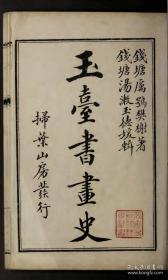 錢塘厲鶚樊榭著
錢塘湯漱玉德媛輯
玉臺書畫史
掃葉山房發行